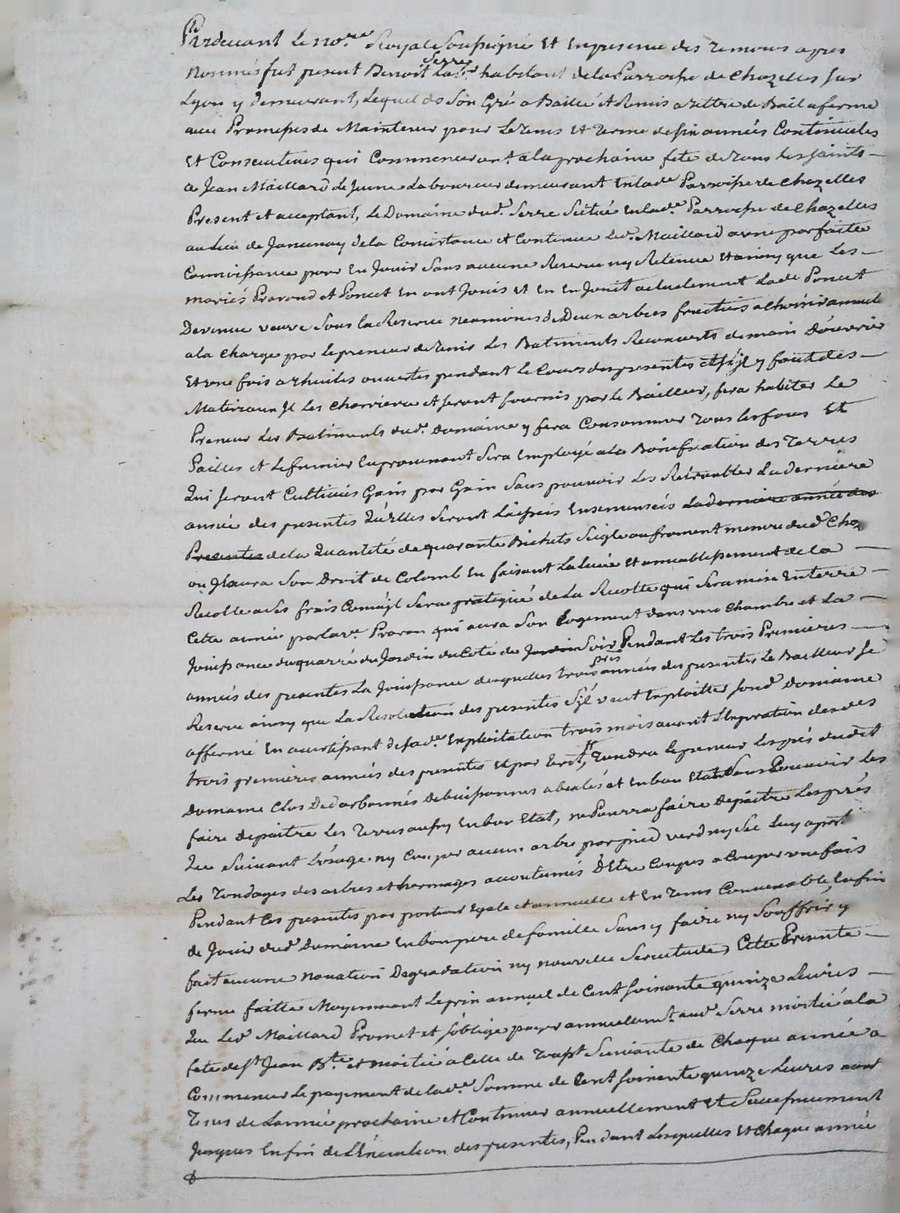 Pardevant Le no.re Royal Soussigné Et En presence des temoins apres
nommés fut present Benoit Serre La.r habitant de la Parroisse de Chazelles sur
Lyon y demeurant, Lequel de Son Gré a Baillé et Remis a tittre de Bail a ferme
avec Promesses de Maintenir pour Le tems Et terme de six années Continuelles
Et Consecutives qui Commenceront a la prochaine fete de tous les saints
a Jean Maillard Le Jeune Laboureur demeurant En lad.e Parroisse de Chazelles
Present et acceptant, Le Domaine dud.t Serre Scitué En lad.e Parroisse de Chazelles
au Lieu de de la Consistance et Contenue Led.t Maillard a une parfaite
Connoissance pour En Jouir Sans aucune Reserve ny Retenue Et ainsy que Les
mariés Pravond et Poncet En ont Jouis Et En Jouit actuelement Lad.e Poncet
Devenue veuve Sous la Reserve neamoins de Deux arbres fruitiers a Choisir annuele
a la Charge par le preneur de tenir Les Batiments Recouverts de main D'ouvrier
Et une fois a thuiles ouvertes pendant le Cours des presentes et S'il y faut des
Materiaux Il Les Charriera et Seront fournis par le Bailleur, fera habiter Le
Preneur Les Batiments dud.t Domaine y fera Consommer tous les foins Et
Pailles et Le fumier En provenant Sera Employé a la Bonification des terres
Qui Seront Cultivées Gain par Gain Sans pouvoir Les Retroubler La derniere
année des presentes Qu'Elles Seront Laissées Ensemencées La derniere année des
Presentes de la Quantité de quarante Bichets Seigle ou froment mesure dud.t Chaz
ou Il aura Son Droit de Colomb En faisant La levée Et amublissement de la
Recolte a Ses frais Comme Il Sera pratiqué de La Recolte qui Sera mise En terre
Cette année par la v.e Pravon qui aura Son Logement dans une Chambre et La
Jouissance du quarré du Jardin du Coté de Jardin Soir Pendant Les trois Premieres
années des presentes La Jouissance desquelles trois p.res années des presentes Le Bailleur Se
Reserve ainsy que La Resolution des presentes S'il veut Exploitter Sond.t Domaine
affermé En avertissant de Sad.e Exploitation trois mois avant L'Expiration desdes
trois premieres années des presentes Et par Ecrit, tiendra Le preneur Les prés dudit
Domaine Clos De Buissonnés et En bon Etat Sans Pouvoir Les
faire depaitre Les terres aussy En bon Etat, ne Pourra faire depaitre Les prés
Que Suivant L'usage ny Couper aucun arbre par pied verd ny Sec Luy
Les tondages des arbres et hermages accoutumés D'Etre Coupés a Couper une fois
Pendant Ces presentes par portion Egale et annuelle et En tems Convenable, Enfin
de Jouir dud.t Domaine En bon pere de famille Sans y faire ny Souffrir y
fait aucune novation Degradation ny nouvelle Servitude, Cette Presente
ferme faitte Moyennant Le prix annuel de Cent soixante quinze Livres
Que Led.t Maillard Promet et s'oblige payer annuellem.t aud.t Serre moitié a la
fete de S.t Jean B.te et moitié a Celle de touss.t Suivante de Chaque année a
Commencer Le payement de lad.e Somme de Cent soixante quinze Livres aux
de L'année prochaine et Continuer annuellement Et Successivement
Jusques En fin de L'Execution des presentes, Pendant Lesquelles Et Chaque année